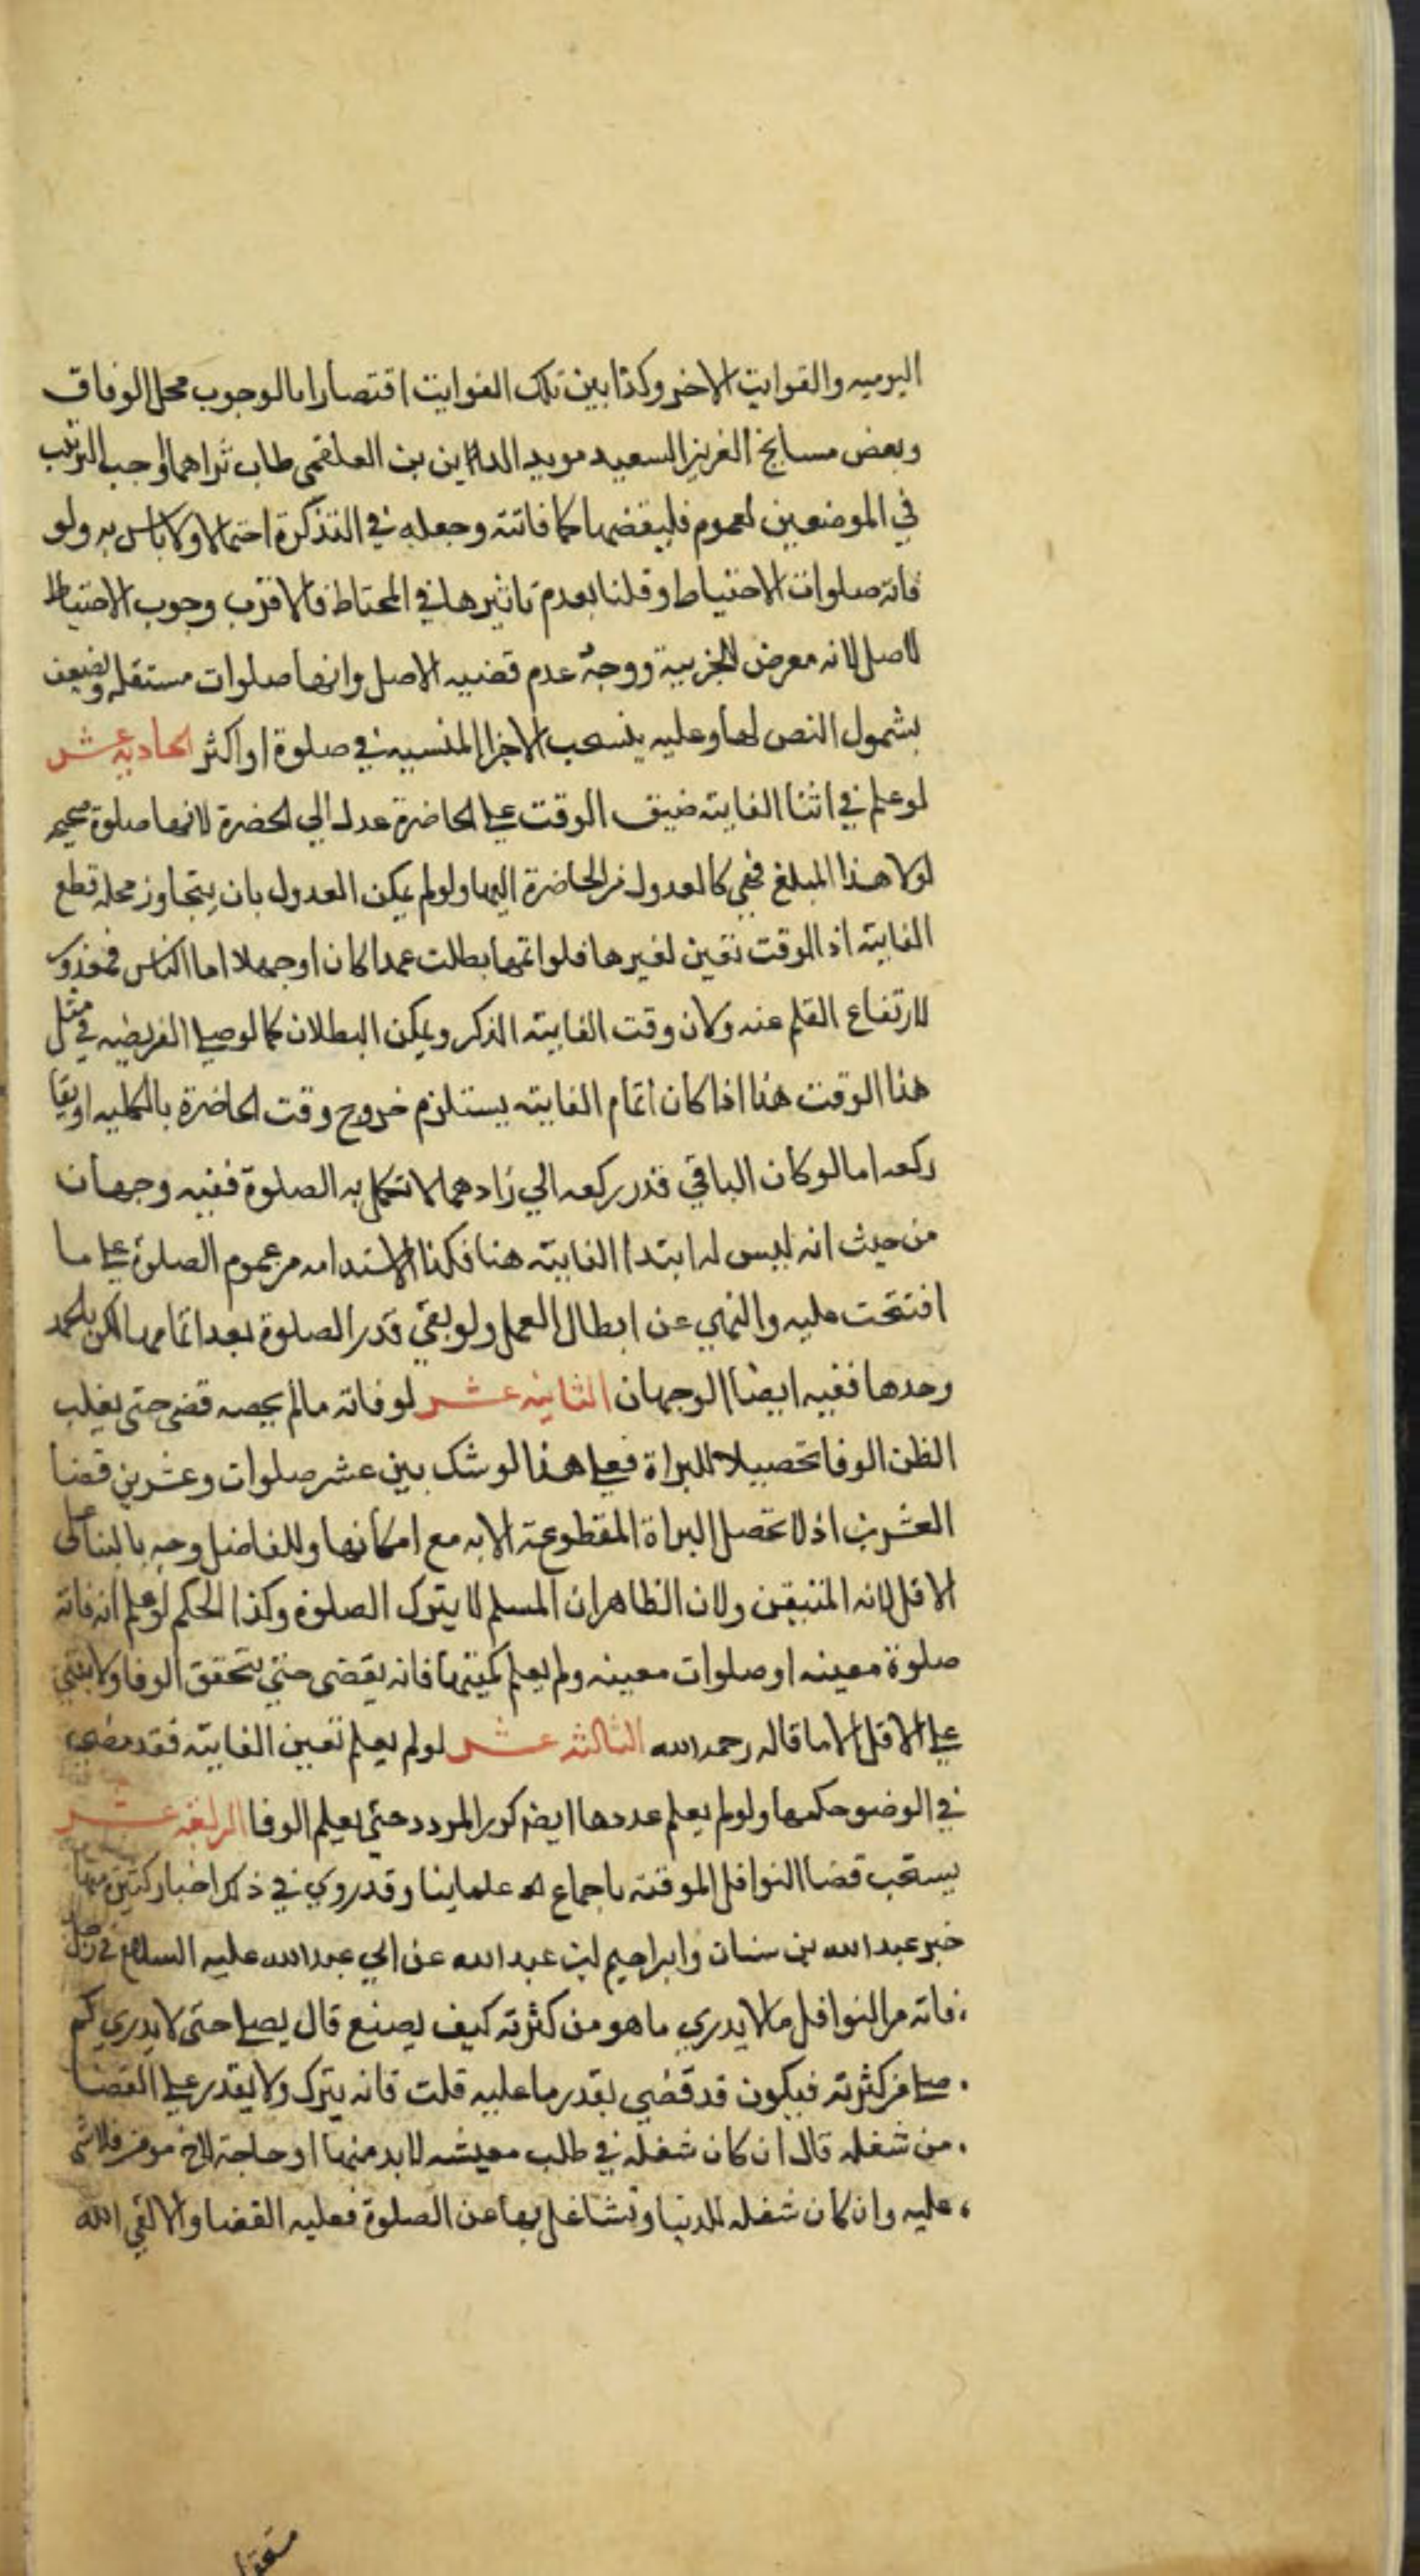 اليوميه والفوايت الاخر وكذا بين تلك الفوايت اقتصارا بالوجوب محل الوفاق
وبعض مسايخ الغرير السعيد مويد الدين بن العلقمي طاب ثراهما اوجب الترتيب
في الموضعين لعموم فليقضها كما فاتته وجعله في التذكرة احتمالا ولا باس به ولو
فاته صلوات الاحتياط وقلنا بعدم تاثيرها في المحتاط فالاقرب وجوب الاحتياط
لاصل لانه معرض للجزيية ووجه عدم قضيه الاصل وانها صلوات مستقله ويضيعف
بشمول النص لها وعليه ينسحب الاجزا المنسيه في صلوة او اكثر الحاديه عشر
لو علم في اثنا الفايته ضيق الوقت على الحاضرة عدل الي الحضرة لانها صلوة صحيحه
لولا هذا المبلغ فهي كالعدول من الحاضرة اليها ولو لم يمكن العدول بان يتجاوز محله قطع
الفايته اذ الوقت تعين لغيرها فلو اتمها بطلت عمدا كان او جهلا اما الناسي فمعذور
لارتفاع القلم عنه ولان وقت الفايته الذكر ويمكن البطلان كما لو صلى الفريضه في مثل
هذا الوقت هذا اذا كان اتمام الفايته يستلزم خروج وقت الحاضرة بالكليه او بقا
ركعه اما لو كان الباقي قدر ركعه الي زاد هما لا تكمل به الصلوة ففيه وجهان
من حيث انه ليس له ابتدا الفايته هنا فكذا الاستدامه من عموم الصلوة على ما
افتتحت عليه والنهي عن ابطال العمل ولو بقي قدر الصلوة بعد اتمامها لكن بالحمد
وحدها ففيه ايضا الوجهان الثانيه عشر لو فاته ما لم يحصه قضى حتى يغلب
الظن الوفا تحصيلا للبراة فعلى هذا لو شك بين عشر صلوات وعشرين قضا
العشرين اذ لا تحصل البراة المقطوعة الا به مع امكانها وللفاضل وجه بالبنا على
الاقل لانه المتيقن ولان الظاهر ان المسلم لا يترك الصلوة وكذا الحكم لو علم انه فاته
صلوة معينه او صلوات معينه ولم يعلم كميتها فانه يقضى حتى يتحقق الوفا ولا يبني
على الاقل الا ما قاله رحمه الله الثالثه عشر لو لم يعلم تعين الفايته فقد مضى
في الوضو حكمها ولو لم يعلم عددها ايض كرر المردد حتى يعلم الوفا الرابعه عشر
يستحب قضا النوافل الموقته باجماع علماينا وقد روي في ذلك اخبار كثيرة منها
خبر عبد الله بن سنان وابراهيم ابن عبد الله عن ابي عبد الله عليه السلام في رجل
فاته من النوافل ما لا يدري ما هو من كثرته كيف يصنع قال يصلي حتى لا يدري كم
صلى من كثرته فيكون قد قضى بقدر ما عليه قلت فانه يترك ولا يقدر على القضا
من شغله قال ان كان شغله في طلب معيشه لا بد منها او حاجة لاخ مومن فلا شي
عليه وان كان شغله للدنيا وتشاغل بها عن الصلوة فعليه القضا والا لقي الله